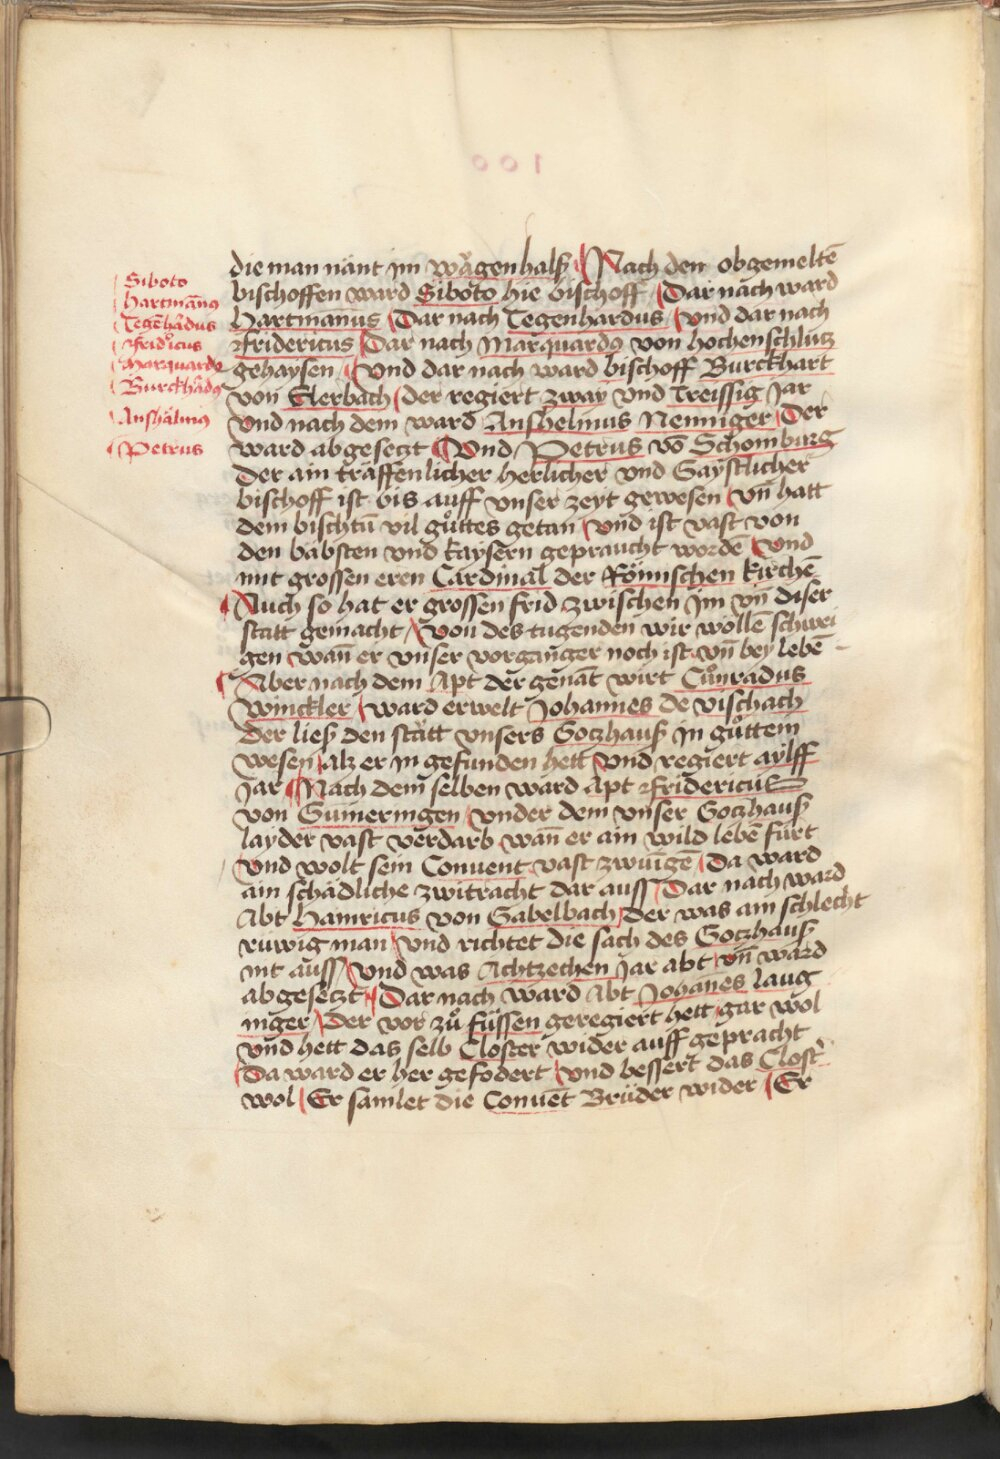 Siboto
Hartmān9
Tegēhardus
Fridricus
Marquard9
Burckhād9
Anshālm9
Petrus
die man nānt im wāgenhalß Nach den obgemeltē
bischoffen ward Siboto hie bischoff Dar nach ward
Hartmanus Dar nach Tegenhardus Und dar nach
Fridericus Dar nach Marquard9 von Hochenschlutz
gehaysen Und dar nach ward bischoff Burckhart
von Elerbach der regiert zway und Treissig Jar
Und nach dem ward Anshelmus Nenniger Der
ward abgesetzt Und Petrus vō Schomburg
Der ain träffenlicher herlicher und Gaystlicher
bischoff ist bis auff unser zeyt gewesen Vn̄ hatt
dem bischtū vil gůttes getan Und ist vast von
den bäbsten und kaysern gepraucht wordē Und
mit grossen eren Cardinal der Römischen kirchē
Auch so hat er grossen frid zwischen Jm vn̄ diser
statt gemacht Von des tugenden wir wollē schwei
gen wan̄ er unser vorganger noch ist vn̄ bey lebē
Aber nach dem Apt der genāt wirt Cůnradus
Winckler ward erwelt Johannes de vischach
der ließ den stātt unsers Gotzhauß in gůttem
wesen alz er in gefunden hett Und regiert aylff
Jar Nach dem selben ward Apt Fridericus
von Gūmeringen under dem unser Gotzhauß
layder vast verdarb wan̄ er ain wild lebē fūrt
Und wolt sein Convent vast zwingē Da ward
ain schädliche zwitracht dar auss Dar nach ward
Abt Hainricus von Gabelbach Der was ain schlecht
ruwig man Und richtet die sach des Gotzhauß
nit auss Und was Achtzechen Jar abt vn̄ ward
abgesetzt Dar nach ward Abt Johānes Laug
inger Der vor zů füssen geregiert hett gar wol
und hett das selb Closter wider auff gepracht
Da ward er her gefodert Und bessert das Clost'
wol Er samlet die Convēt Brüder wider Er